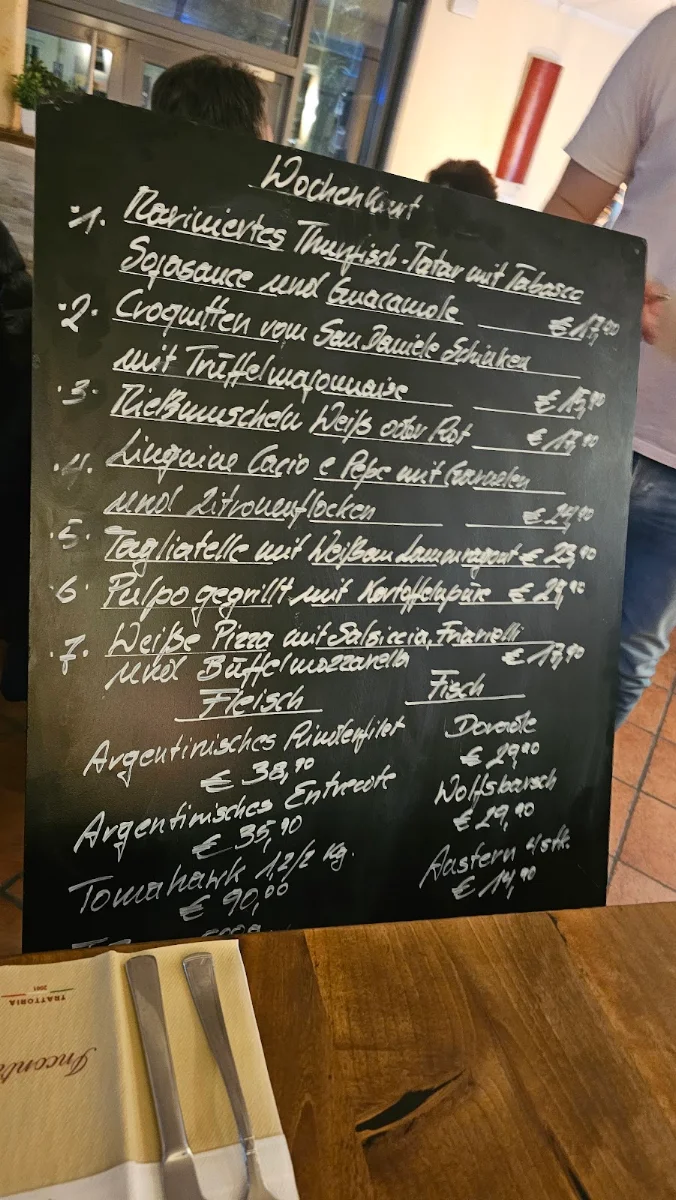 Wochenkart
1. Mariniertes Thunfisch-Tatar mit Tabasco
Sojasauce und Guacamole € 17,90
2. Croquetten vom San Daniele Schinken
mit Trüffelmayonnaise € 15,90
3. Mießmuscheln Weiß oder Rot € 17,90
4. Linguine Cacio e Pepe mit Garnelen
und Zitronenflocken € 24,90
5. Tagliatelle mit Weißem Lammragout € 23,90
6. Pulpo gegrillt mit Kartoffelpüre € 29,90
7. Weiße Pizza mit Salsiccia, Friarielli
und Büffelmozzarella € 17,90
Fleisch
Argentinisches Rinderfilet
€ 38,90
Argentinisches Entrecote
€ 35,90
Tomahawk 1,2/2 kg.
€ 90,00
Fisch
Dorade
€ 29,90
Wolfsbarsch
€ 29,90
Austern 4 stk.
€ 14,90
TRATTORIA
2001